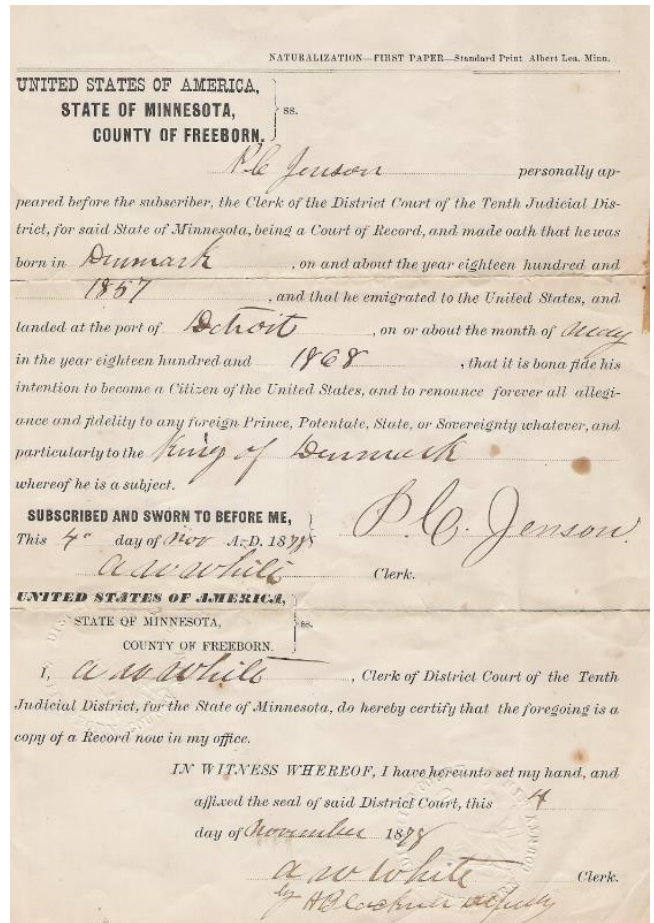 NATURALIZATION—FIRST PAPER—Standard Print Albert Lea, Minn.
UNITED STATES OF AMERICA,
STATE OF MINNESOTA, ss.
COUNTY OF FREEBORN.
P. C. Jenson personally ap-
peared before the subscriber, the Clerk of the District Court of the Tenth Judicial Dis-
trict, for said State of Minnesota, being a Court of Record, and made oath that he was
born in Denmark, on and about the year eighteen hundred and
1857, and that he emigrated to the United States, and
landed at the port of Detroit, on or about the month of May
in the year eighteen hundred and 1868, that it is bona fide his
intention to become a Citizen of the United States, and to renounce forever all allegi-
ance and fidelity to any foreign Prince, Potentate, State, or Sovereignty whatever, and
particularly to the King of Denmark
whereof he is a subject.
SUBSCRIBED AND SWORN TO BEFORE ME,
This 4" day of Nov A.D. 1878 P. C. Jenson.
A W White Clerk.
UNITED STATES OF AMERICA,
STATE OF MINNESOTA, ss.
COUNTY OF FREEBORN.
I, A W White, Clerk of District Court of the Tenth
Judicial District, for the State of Minnesota, do hereby certify that the foregoing is a
copy of a Record now in my office.
IN WITNESS WHEREOF, I have hereunto set my hand, and
affixed the seal of said District Court, this 4
day of November 1878
A W White Clerk.
by Deputy